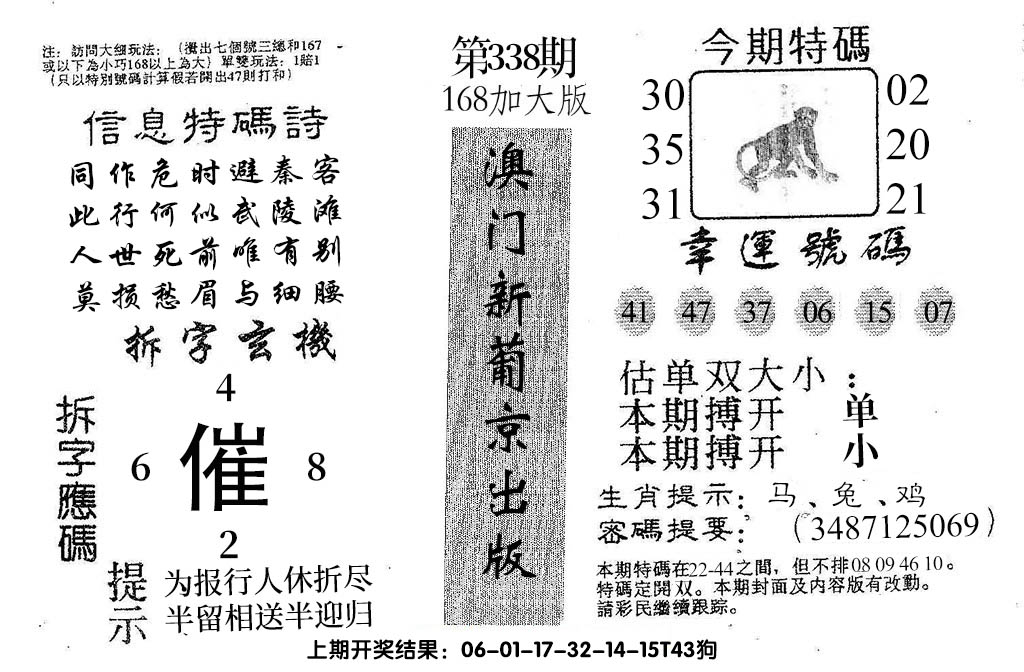 注：訪問大細玩法：（攪出七個號三總和167
或以下為小巧168以上為大）單雙玩法：1賠1
（只以特別號碼計算假若開出47則打和）
信息特碼詩
同作危时避秦客
此行何似武陵滩
人世死前唯有别
莫损愁眉与细腰
拆字玄機
拆字應碼
4
6 催 8
2
提示
为报行人休折尽
半留相送半迎归
第338期
168加大版
澳门新葡京出版
今期特碼
30 02
35 20
31 21
幸運號碼
41 47 37 06 15 07
估单双大小：
本期搏开 单
本期搏开 小
生肖提示：马、兔、鸡
密碼提要：（3487125069）
本期特碼在22-44之間，但不排08 09 46 10。
特碼定開双。本期封面及内容版有改動。
請彩民繼續跟踪。
上期开奖结果：06-01-17-32-14-15T43狗